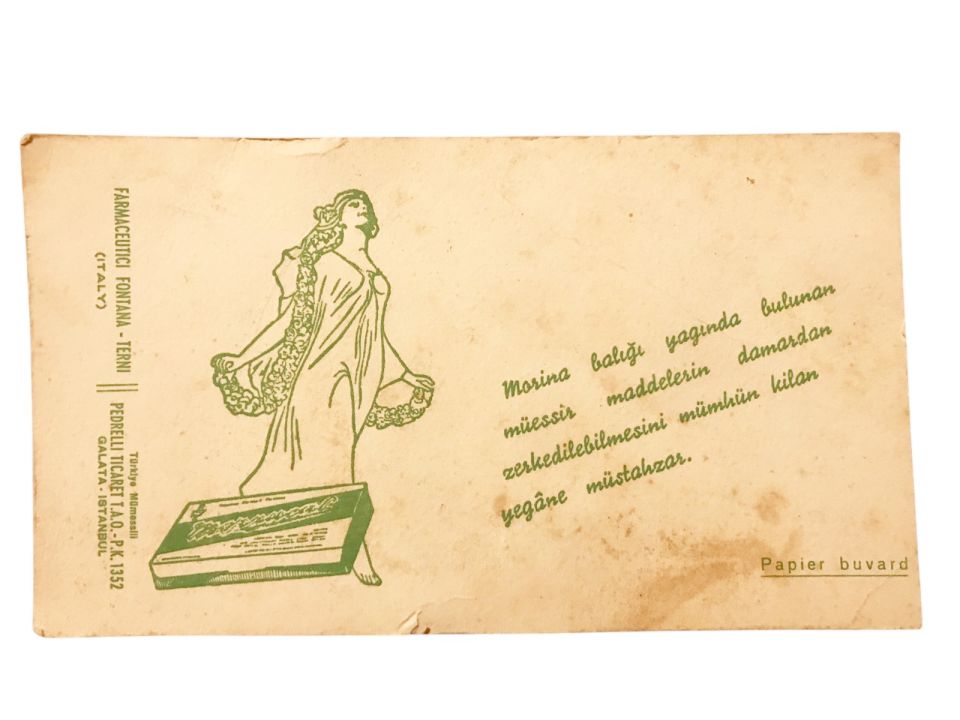 FARMACEUTICI FONTANA - TERNI
(ITALY)
Türkiye Mümessili
PEDRELLI TİCARET T.A.O. - P.K. 1352
GALATA - ISTANBUL
Morina balığı yagında bulunan
müessir maddelerin damardan
zerkedilebilmesini mümhün kilan
yegâne müstahzar.
Papier buvard